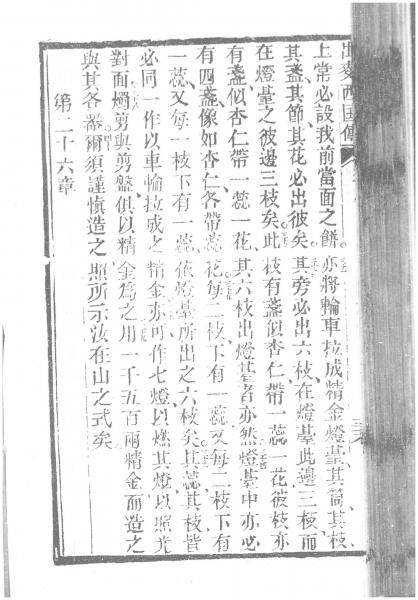 出麥西國傳
上常必設我前當面之餅亦將輪車拉成精金燈臺其筒其枝
其盞其節其花必出彼矣其旁必出六枝在燈臺此邊三枝而
在燈臺之彼邊三枝矣此枝有盞似杏仁帶一蕊一花彼枝亦
有盞似杏仁帶一蕊一花其六枝出燈臺者亦然燈臺中亦必
有四盞像如杏仁各帶蕊花每二枝下有一蕊又每二枝下有
一蕊又每一枝下有一蕊依燈臺所出之六枝矣其蕊其枝皆
必同一作以車輪拉成之精金亦可作七燈以燃其燈以照光
對面燭剪與剪盤俱以精金為之用一千五百兩精金而造之
與其各器爾須謹慎造之照所示汝在山之式矣
第二十六章